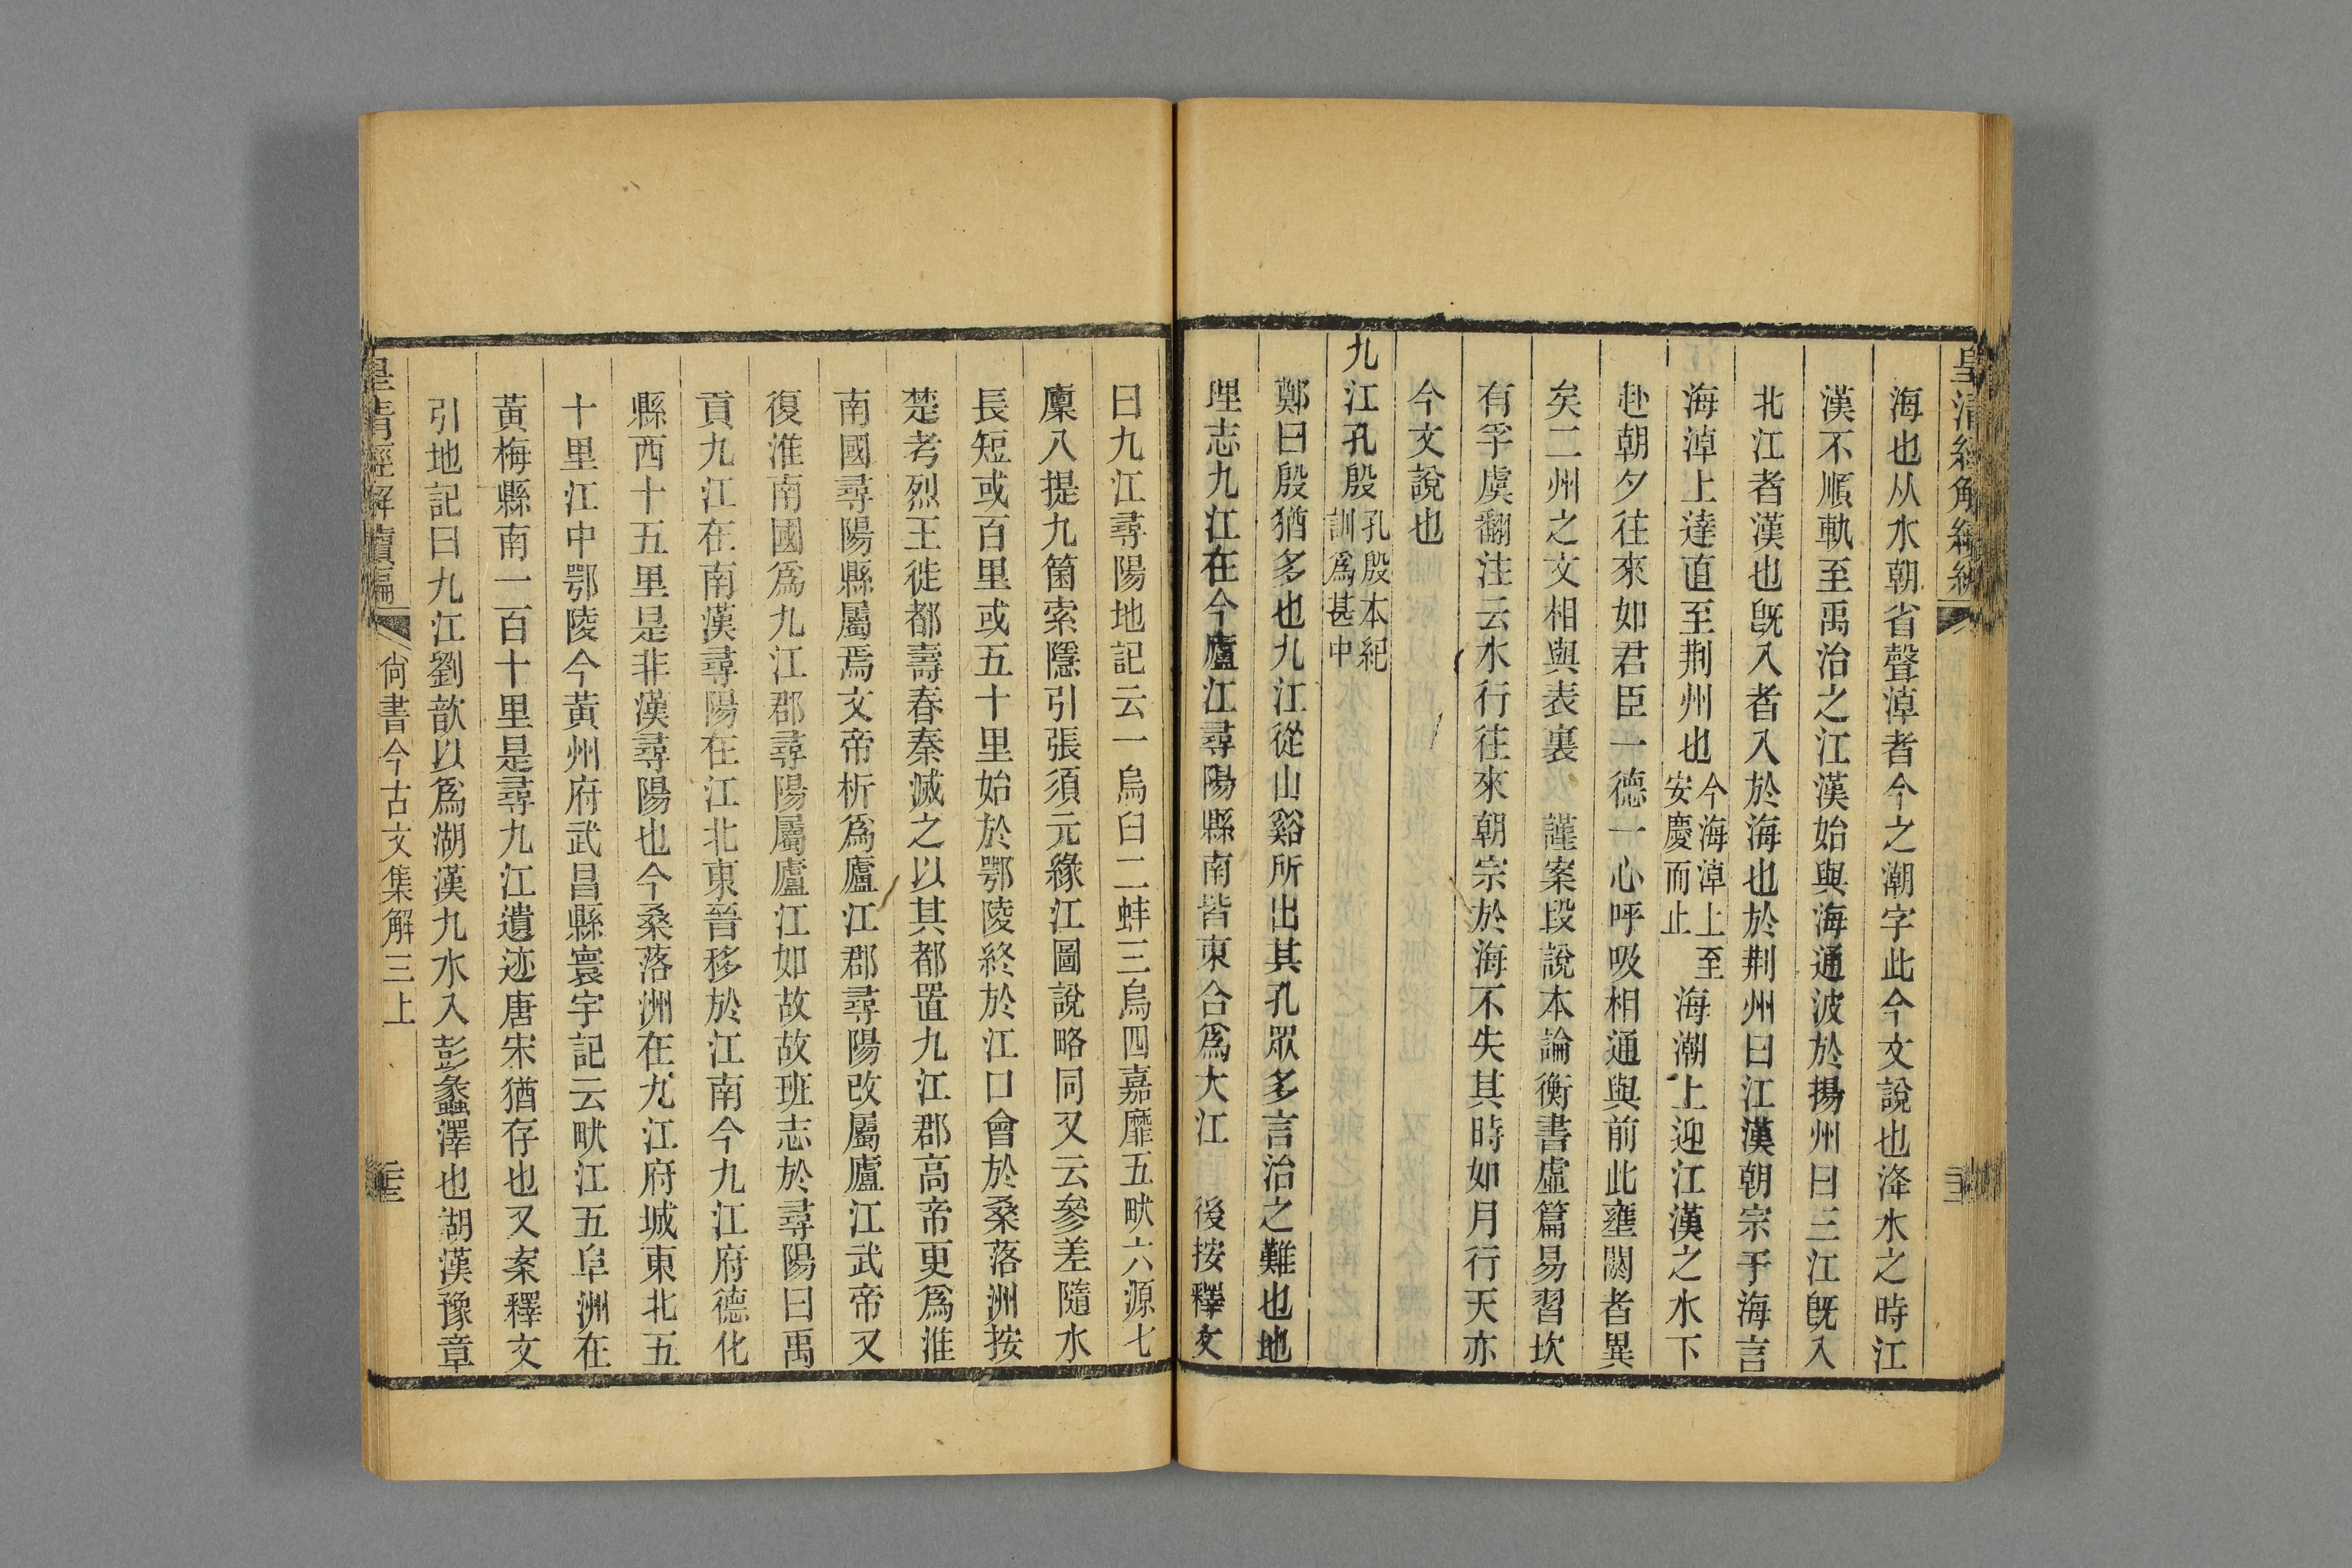 皇清經解續編
海也从水朝省聲淖者今之潮字此今文說也洚水之時江
漢不順軌至禹治之江漢始與海通波於揚州曰三江旣入
北江者漢也旣入者入於海也於荆州曰江漢朝宗于海言
海淖上達直至荆州也今海淖上至安慶而止海潮上迎江漢之水下
赴朝夕往來如君臣一德一心呼吸相通與前此壅閼者異
矣二州之文相與表裏 謹案段說本論衡書虛篇易習坎
有孚虞翻注云水行往來朝宗於海不失其時如月行天亦
今文說也
九江孔殷孔殷本紀訓爲甚中
鄭曰殷猶多也九江從山谿所出其孔眾多言治之難也地
理志九江在今廬江尋陽縣南皆東合爲大江 後按釋文
曰九江尋陽地記云一烏臼二蚌三烏四嘉靡五畎六源七
廩八提九箘索隱引張須元緣江圖說略同又云參差隨水
長短或百里或五十里始於鄂陵終於江口會於桑落洲按
楚考烈王徙都壽春秦滅之以其都置九江郡高帝更爲淮
南國尋陽縣屬焉文帝析爲廬江郡尋陽改屬廬江武帝又
復淮南國爲九江郡尋陽屬廬江如故故班志於尋陽曰禹
貢九江在南漢尋陽在江北東晉移於江南今九江府德化
縣西十五里是非漢尋陽也今桑落洲在九江府城東北五
十里江中鄂陵今黃州府武昌縣寰宇記云畎江五阜洲在
黃梅縣南一百十里是尋九江遺迹唐宋猶存也又案釋文
引地記曰九江劉歆以爲湖漢九水入彭蠡澤也湖漢豫章
皇清經解續編 尙書今古文集解三上